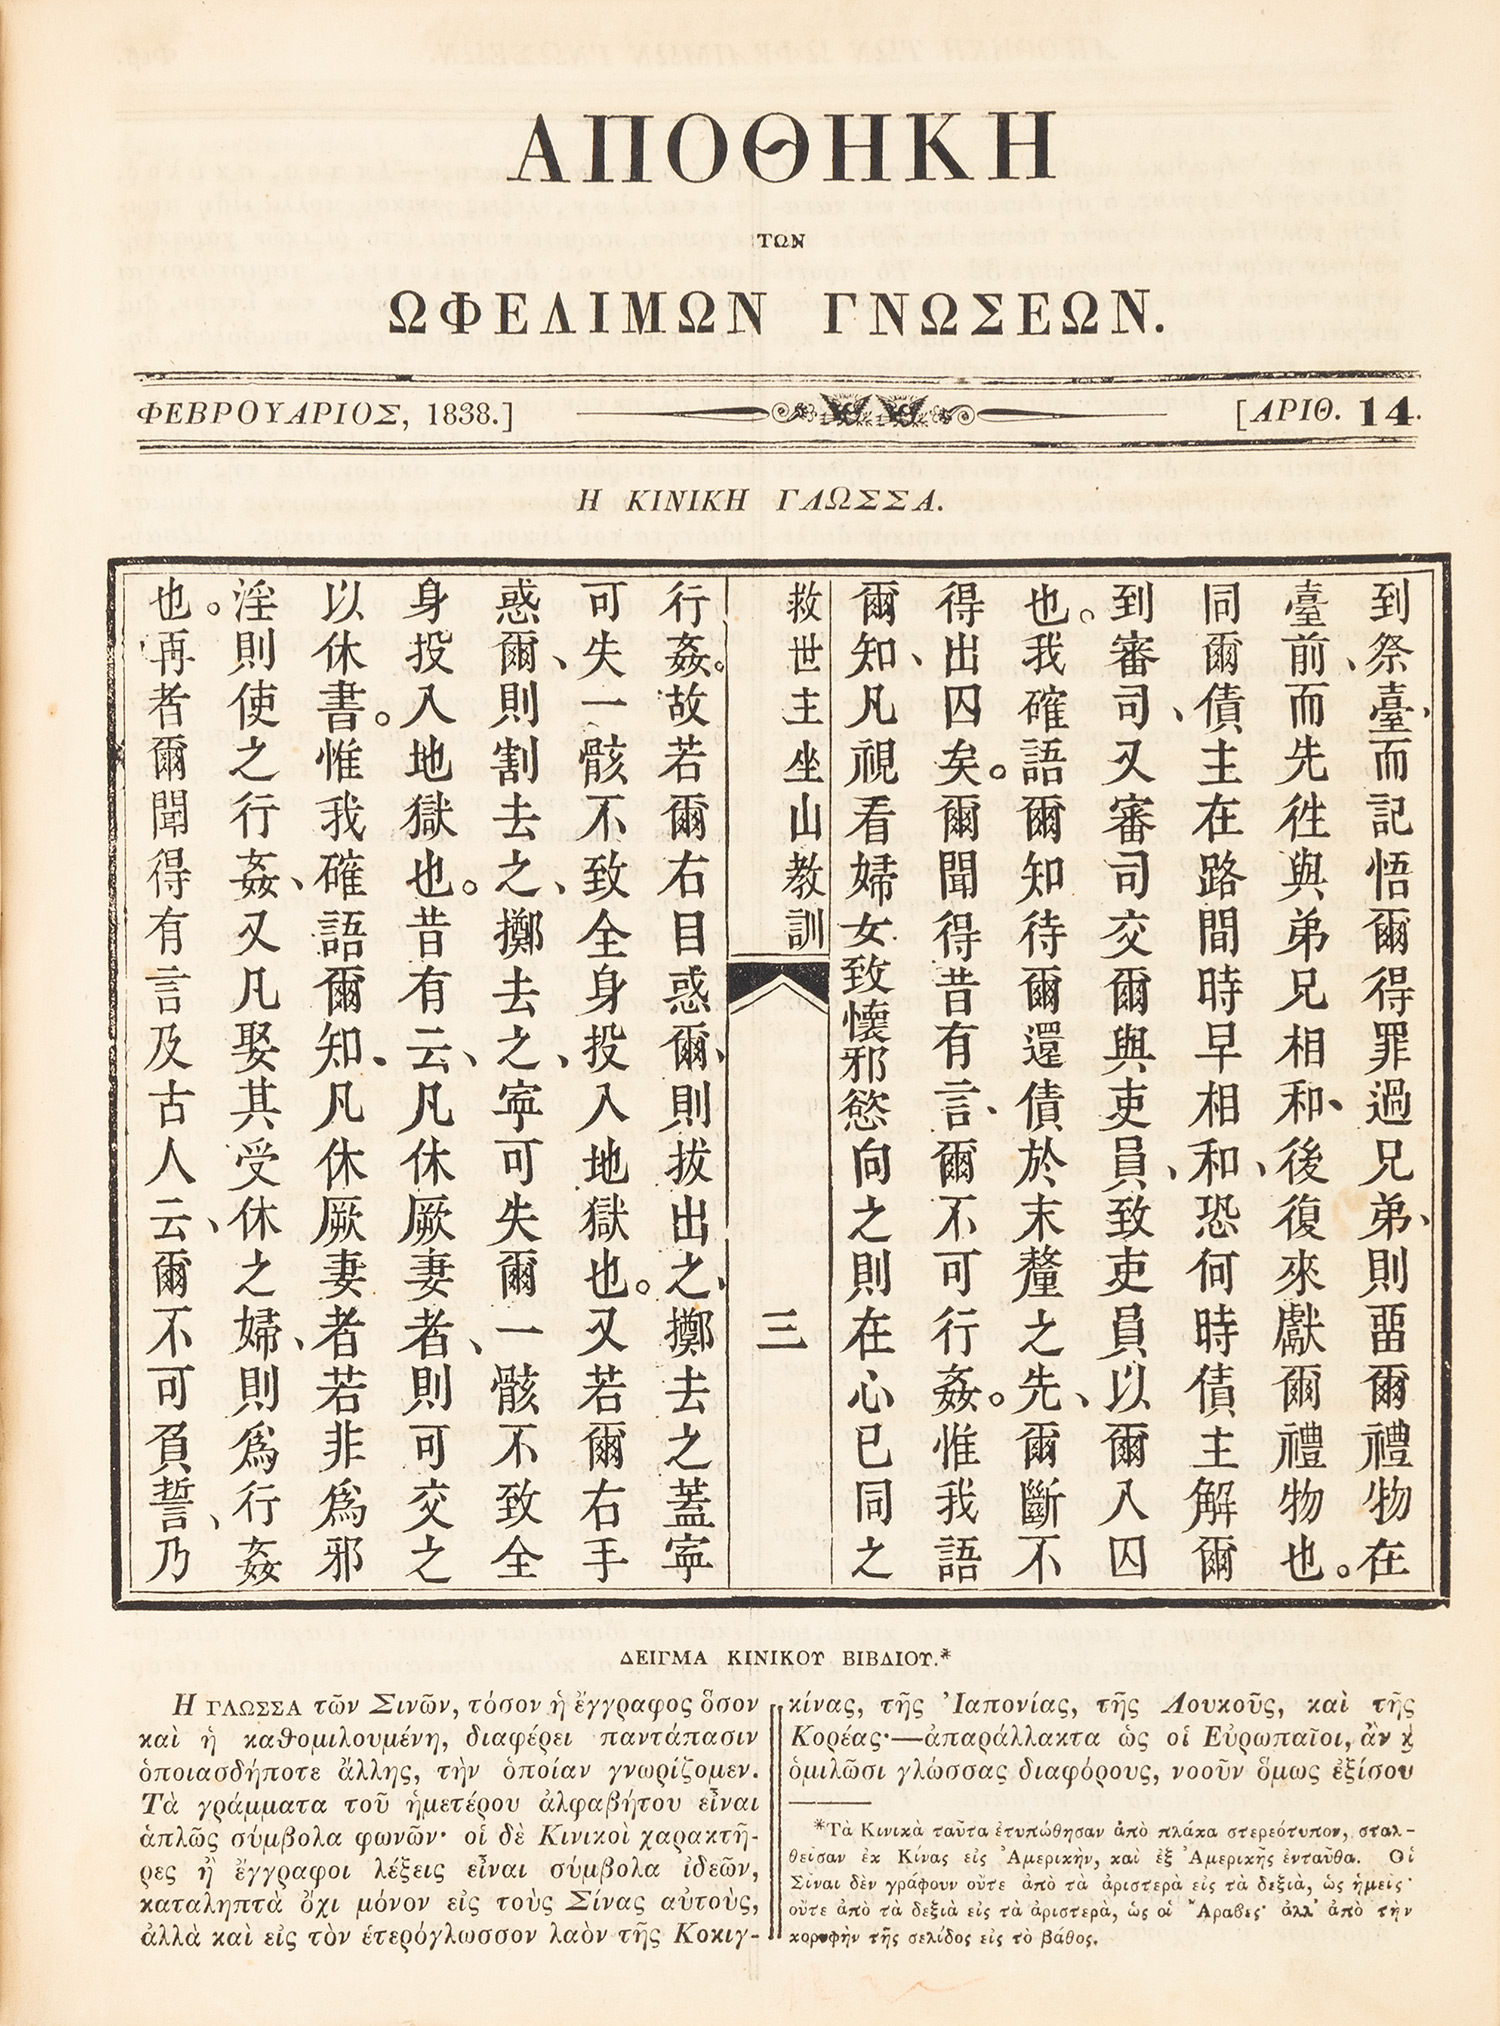 ΑΠΟΘΗΚΗ
ΤΩΝ
ΩΦΕΛΙΜΩΝ ΓΝΩΣΕΩΝ.
ΦΕΒΡΟΥΑΡΙΟΣ, 1838.]
[ΑΡΙΘ. 14.
Η ΚΙΝΙΚΗ ΓΛΩΣΣΑ.
到祭臺、而記悟爾得罪過兄弟、則畱爾禮物在
臺前、而先徃與弟兄相和、後復來獻爾禮物也。
同爾債主在路間時早相和、恐何時債主解爾
到審司、又審司交爾與吏員、致吏員以爾入囚
也。我確語爾知待爾還債於末釐之先、爾斷不
得出囚矣。爾聞得昔有言、爾不可行姦。惟我語
爾知、凡視看婦女致懷邪慾向之則在心已同之
救世主坐山教訓
三
行姦。故若爾右目惑爾、則拔出之、擲去之蓋寧
可失一骸不致全身投入地獄也。又若爾右手
惑爾、則割去之、擲去之、寧可失爾一骸不致全
身投入地獄也。昔有云、凡休厥妻者、則可交之
以休書。惟我確語爾知、凡休厥妻者若非爲邪
淫則使之行姦、又凡娶其受休之婦、則爲行姦
也。再者爾聞得有言及古人云、爾不可負誓、乃
ΔΕΙΓΜΑ ΚΙΝΙΚΟΥ ΒΙΒΛΙΟΥ.*
Η ΓΛΩΣΣΑ τῶν Σινῶν, τόσον ἡ ἔγγραφος ὅσον
καὶ ἡ καθομιλουμένη, διαφέρει παντάπασιν
ὁποιασδήποτε ἄλλης, τὴν ὁποίαν γνωρίζομεν.
Τὰ γράμματα τοῦ ἡμετέρου ἀλφαβήτου εἶναι
ἁπλῶς σύμβολα φωνῶν· οἱ δὲ Κινικοὶ χαρακτῆ-
ρες ἢ ἔγγραφοι λέξεις εἶναι σύμβολα ἰδεῶν,
καταληπτὰ ὄχι μόνον εἰς τοὺς Σίνας αὐτοὺς,
ἀλλὰ καὶ εἰς τὸν ἑτερόγλωσσον λαὸν τῆς Κοκιγ-
κίνας, τῆς Ἰαπονίας, τῆς Λουκοῦς, καὶ τῆς
Κορέας·—ἀπαράλλακτα ὡς οἱ Εὐρωπαῖοι, ἂν ϗ
ὁμιλῶσι γλώσσας διαφόρους, νοοῦν ὅμως ἐξίσου
*Τὰ Κινικὰ ταῦτα ἐτυπώθησαν ἀπὸ πλάκα στερεότυπον, σταλ-
θεῖσαν ἐκ Κίνας εἰς Ἀμερικὴν, καὶ ἐξ Ἀμερικῆς ἐνταῦθα. Οἱ
Σίναι δὲν γράφουν οὔτε ἀπὸ τὰ ἀριστερὰ εἰς τὰ δεξιὰ, ὡς ἡμεῖς·
οὔτε ἀπὸ τὰ δεξιὰ εἰς τὰ ἀριστερὰ, ὡς οἱ Ἄραβες· ἀλλ' ἀπὸ τὴν
κορυφὴν τῆς σελίδος εἰς τὸ βάθος.